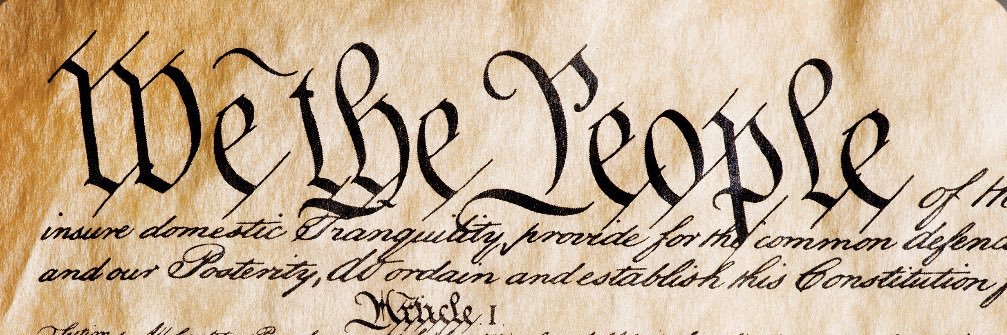 We the People of
insure domestic Tranquility, provide for the common defenc
and our Posterity, do ordain and establish this Constitution
Article I